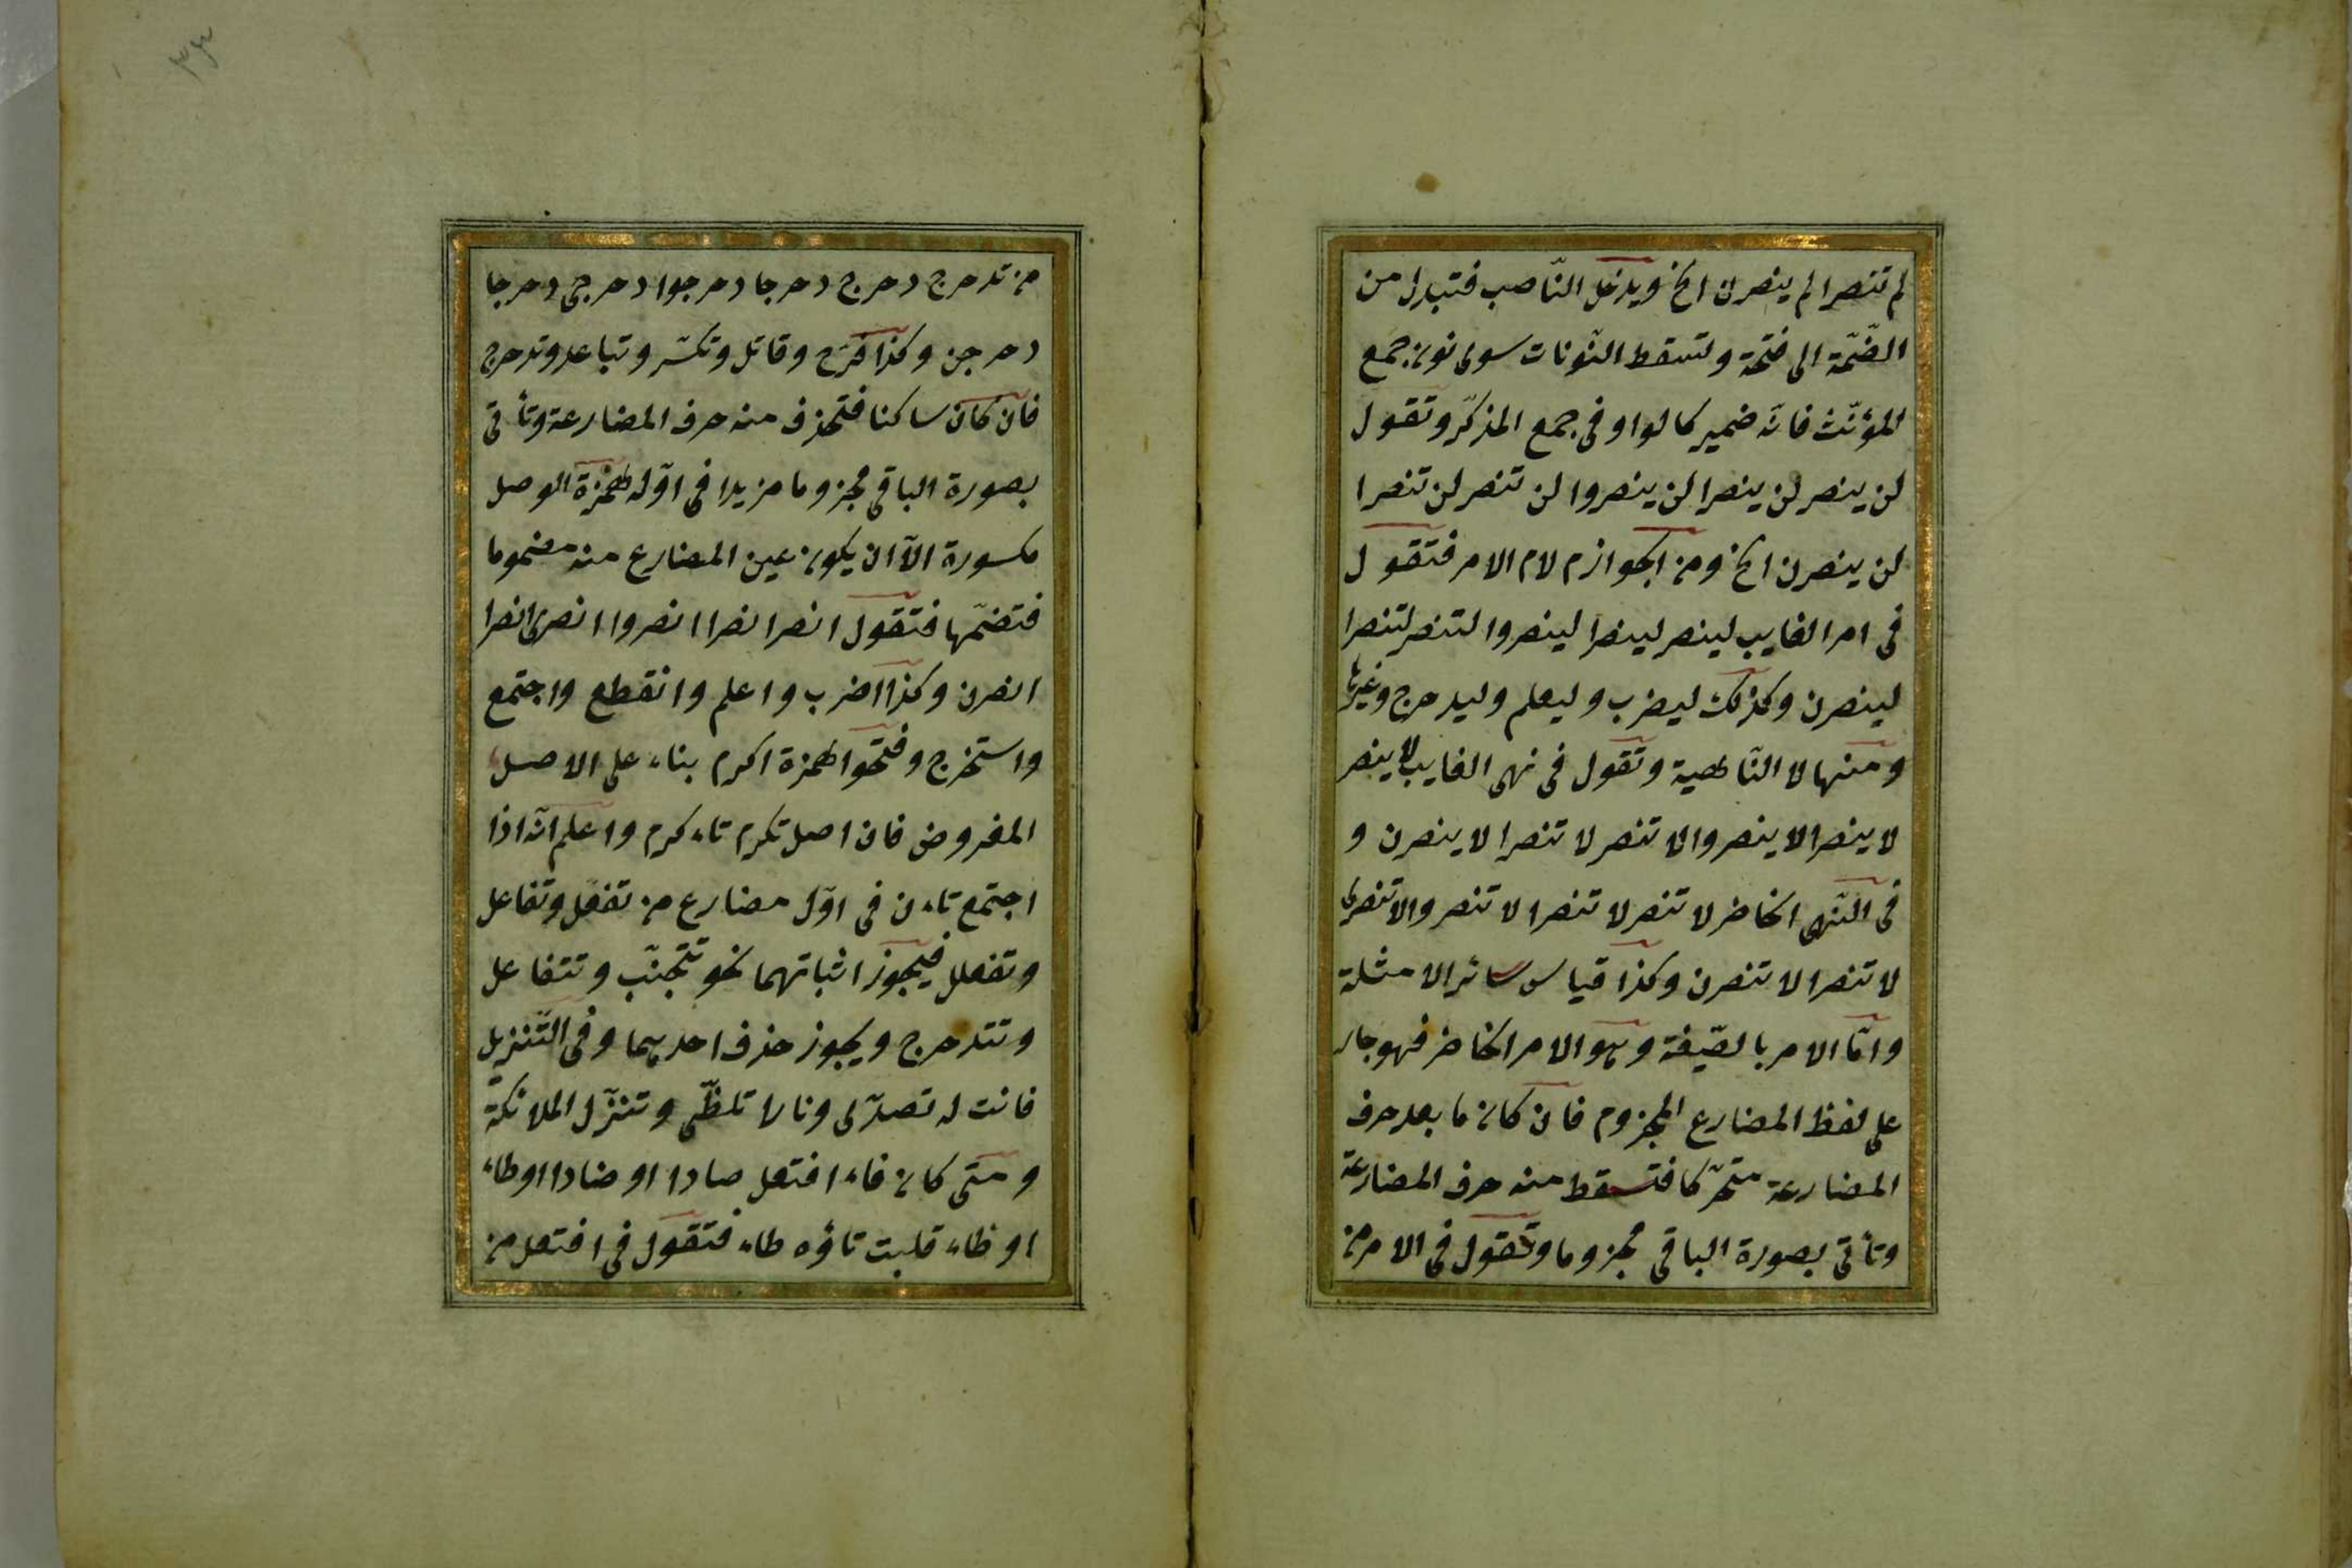 لم تنصرا لم ينصرن الخ ويدخل النّاصب فتبدل من
الضّمّة الى فتحة وتسقط النّونات سوى نون جمع
المؤنّث فانّه ضمير كالواو فى جمع المذكّر وتقول
لن ينصر لن ينصرا لن ينصروا لن تنصر لن تنصرا
لن ينصرن الخ ومن الجوازم لام الامر فتقول
فى امر الغايب لينصر لينصرا لينصروا لتنصر لتنصرا
لينصرن وكذلك ليضرب وليعلم وليدحرج وغيرها
ومنها لا النّاهية وتقول فى نهى الغايب لا ينصر
لا ينصرا لا ينصروا لا تنصر لا تنصرا لا ينصرن و
فى النّهى الحاضر لا تنصر لا تنصرا لا تنصروا لا تنصرى
لا تنصرا لا تنصرن وكذا قياس سائر الامثلة
وامّا الامر بالصّيغة وهو الامر الحاضر فهو جار
على لفظ المضارع المجزوم فان كان ما بعد حرف
المضارعة متحرّكا فتسقط منه حرف المضارعة
وتأتى بصورة الباقى مجزوما وتقول فى الامر من
٣٣
من تدحرج دحرج دحرجا دحرجوا دحرجى دحرجا
دحرجن وكذا فرّح وقاتل وتكسّر وتباعد وتدحرج
فان كان ساكنا فتحذف منه حرف المضارعة وتأتى
بصورة الباقى مجزوما مزيدا فى اوّله همزة الوصل
مكسورة الّا ان يكون عين المضارع منه مضموما
فتضمّها فتقول انصر انصرا انصروا انصرى انصرا
انصرن وكذا اضرب واعلم وانقطع واجتمع
واستخرج وفتحوا همزة اكرم بناء على الاصل
المفروض فان اصل تكرم تاءكرم واعلم انّه اذا
اجتمع تاءن فى اوّل مضارع من تفعّل وتفاعل
وتفعلل فيجوز اثباتهما نحو تتجنّب وتتفاعل
وتتدحرج ويجوز حذف احديهما وفى التّنزيل
فانت له تصدّى ونارا تلظّى وتنزّل الملائكة
ومتى كان فاء افتعل صادا او ضادا او طاء
او ظاء قلبت تاؤه طاء فتقول فى افتعل من